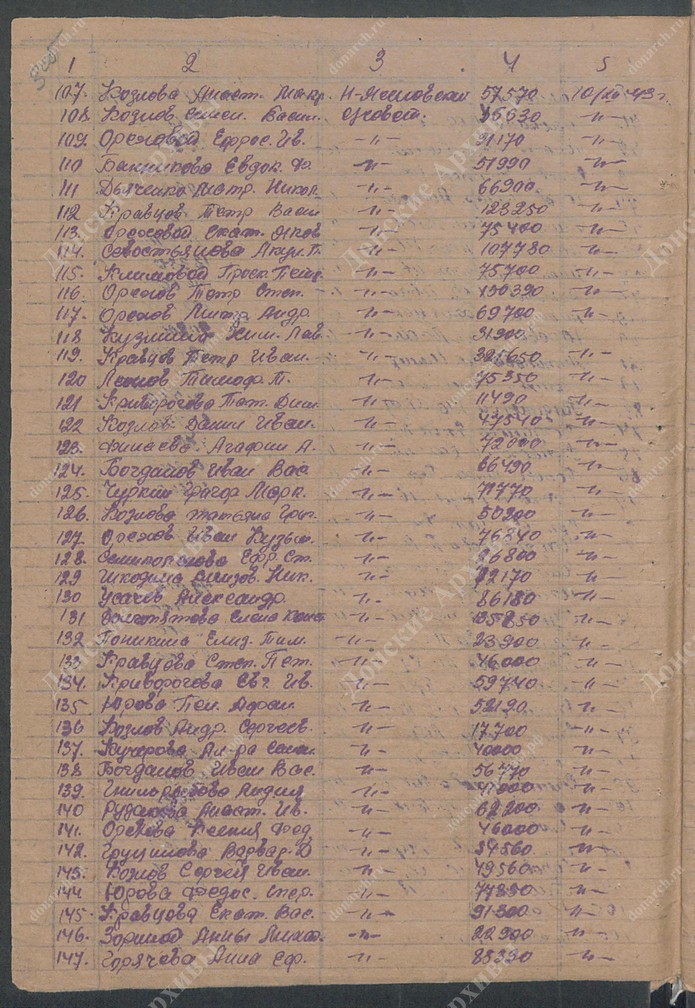 1 2 3 4 5
107. Козлова Анаст. Макр. Н-Ясиновский 57570 10/XII-43 г.
108. Козлов Семен. Васил. с/совет. 36630 -"-
109. Ореховой Ефрос. Ив. -"- 31170 -"-
110 Банникова Евдок. Фо. -"- 51990 -"-
111 Дьяченко Матр. Никол. -"- 66900. -"-
112 Кравцов Петр Васил -"- 123250 -"-
113. Ореховой Екат. -"- 75400 -"-
114. Севостьянова Акул. П. -"- 107780 -"-
115. Климовой Проск. Петр. -"- 75700 -"-
116. Орехов Петр Степ. -"- 130390 -"-
117. Орехов Дмитр. Андр -"- 69700 -"-
118 Кузьмина Лав. -"- 31900 -"-
119. Кравцов Петр Иван. -"- 325650 -"-
120 Леонов Тимоф. П. -"- 75350 -"-
121 Криворогова Пат. Дим. -"- 11490 -"-
122 Козлов Данил Иван. -"- 47540 -"-
123. Агафия А. -"- 42000 -"-
124. Богданов Иван Вас -"- 66490 -"-
125. Чуркин Григор Марк. -"- 71770 -"-
126. Козлова Татьяна Григ. -"- 50200 -"-
127. Орехов Иван Кузьм. -"- 76840 -"-
128. Ефр. Ст. -"- 26800 -"-
129 Шкодина Ник. -"- 72170 -"-
130 Усачев Александр. -"- 86180 -"-
131 Долгопятова Елена Конст -"- 35850 -"-
132 Поникина Елиз. Тим. -"- 23900 -"-
133. Кравцова Степ. Пет. -"- 46000 -"-
134. Криворогова Евг. Ив. -"- 59740 -"-
135 Юрова Пел. Афан. -"- 52190 -"-
136 Козлов Андр. Сергеев. -"- 17700 -"-
137. Кучерова Ал-ра Семен. -"- 40000 -"-
138 Богданов Иван Вас. -"- 56770 -"-
139. Лидия -"- 41000 -"-
140 Рудакова Анаст. Ив. -"- 62200 -"-
141. Орехова Ксения Фед -"- 46000 -"-
142. Грушинова Варвар. Д -"- 34560 -"-
143. Козлов Сергей Иван. -"- 49560 -"-
144 Юрова Федос. Спир. -"- 77890 -"-
145. Кравцова Екат. Вас. -"- 91300 -"-
146. Зориной Анны -"- 22900 -"-
147. Горячева Анна Еф. -"- 85390 -"-